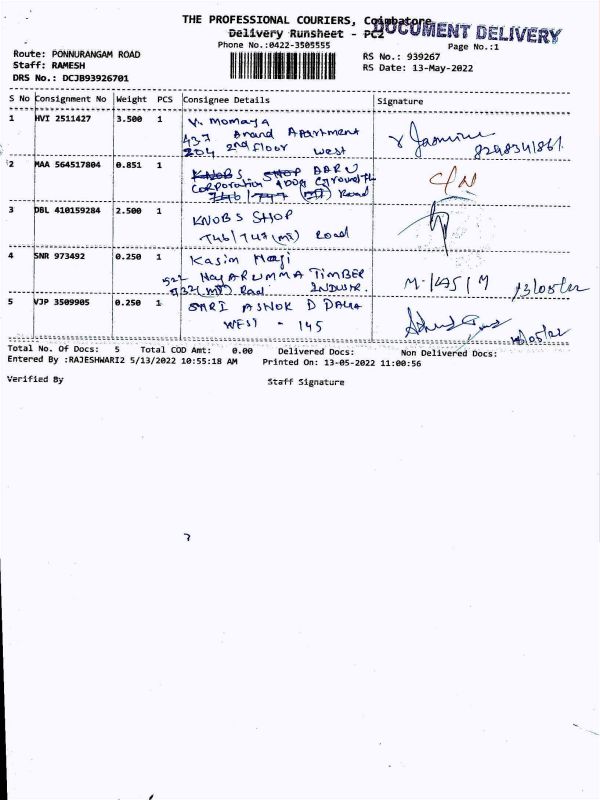 THE PROFESSIONAL COURIERS, Coimbatore
DOCUMENT DELIVERY
Delivery Runsheet - PC2
Phone No.:0422-3505555
Page No.:1
Route: PONNURANGAM ROAD
RS No.: 939267
Staff: RAMESH
RS Date: 13-May-2022
DRS No.: DCJB93926701
S No Consignment No Weight PCS Consignee Details Signature
1 HVI 2511427 3.500 1 V. Momaya
437 Anand Apartment
204 2nd floor West
Jasmine
8298341861
2 MAA 564517804 0.851 1 KNOBS SHOP
Corporation Ground FL
746/747 Road
C/N
3 DBL 410159284 2.500 1 KNOBS SHOP
746/747 (MT) Road
4 SNR 973492 0.250 1 Kasim Haji
TIMBER
INDUSTR.
M. KASIM 13/05/22
5 VJP 3509905 0.250 1 SHRI ASHOK D
WEST - 145
Total No. Of Docs: 5 Total COD Amt: 0.00 Delivered Docs: Non Delivered Docs:
Entered By :RAJESHWARI2 5/13/2022 10:55:18 AM Printed On: 13-05-2022 11:00:56
Verified By Staff Signature